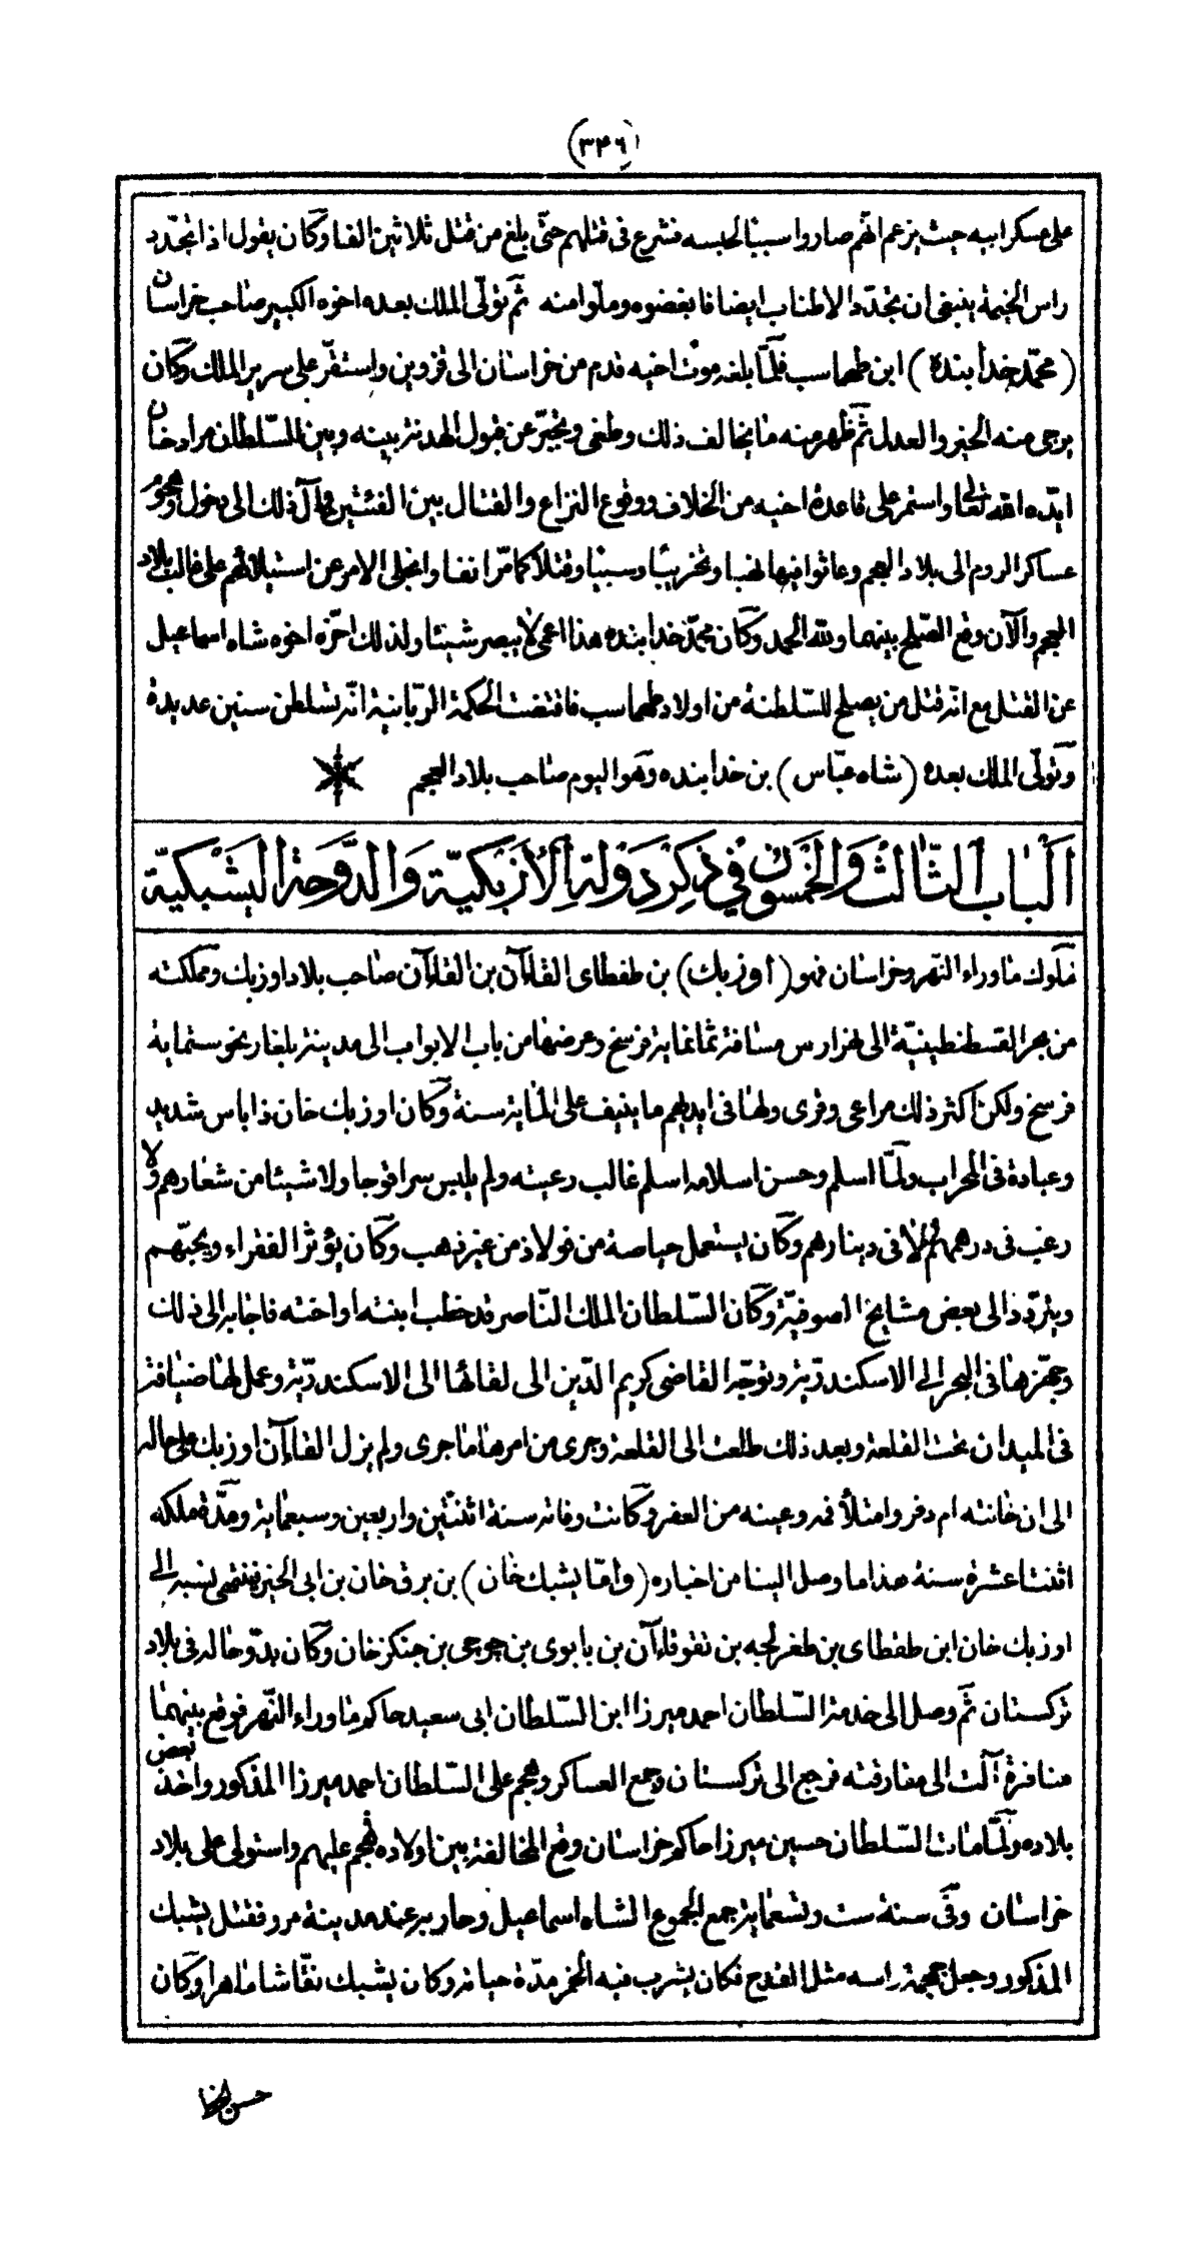 (٣٤٦)
على عسكر ابيه حيث يزعم انهم صاروا سببا لحبسه فشرع فى قتلهم حتّى بلغ من قتل ثلاثين الفا وكان يقول اذا تجدّد
راس الخيمة ينبغى ان تجدّد الاطناب ايضا فابغضوه وملّوا منه ثم تولّى الملك بعده اخوه الكبير صاحب خراسان
(محمّد خدا بنده) ابن طهماسب فلمّا بلغه موت اخيه قدم من خراسان الى قزوين واستقرّ على سرير الملك وكان
يرجى منه الخير والعدل ثم ظهر منه ما يخالف ذلك وطغى وتجبّر عن قبول الهدنة بينه وبين السّلطان مراد خان
ايّده الله تعالى واستمر على قاعدة اخيه من الخلاف ووقوع النزاع والقتال بين الفئتين فمآل ذلك الى دخول وهجوم
عساكر الروم الى بلاد العجم وعاثوا فيها نهبا وتخريبا وسبيا وقتلا كما مرّ انفا وانجلى الامر عن استيلائهم على غالب بلاد
العجم والآن وقع الصّلح بينهما ولله الحمد وكان محمّد خدا بنده هذا اعمى لا يبصر شيئا ولذلك اخّره اخوه شاه اسماعيل
عن القتل مع انّه قتل من يصلح للسّلطنة من اولاد طهماسب فاقتضت الحكمة الرّبّانية انّه تسلطن سنين عديدة
وتولّى الملك بعده (شاه عبّاس) بن خدا بنده وهو اليوم صاحب بلاد العجم
اَلْبابُ الثّالِثُ وَالخَمْسُونَ في ذِكْرِ دَوْلَةِ الأُزْبَكيّة وَالدَّوحَة الشَبْكيّة
ملوك ماوراء النهر وخراسان فهو (اوزبك) بن طفطاى القاءآن بن القاءآن صاحب بلاد اوزبك ومملكته
من بحر القسطنطينيّة الى نهر ارس مسافة ثمانماية فرسخ وعرضها من باب الابواب الى مدينة بلغار نحو ستماية
فرسخ ولكن اكثر ذلك مراعى وقرى ولها فى ايديهم ما ينيف على الماية سنة وكان اوزبك خان ذا باس شديد
وعبادة فى المحراب ولمّا اسلم وحسن اسلامه اسلم غالب رعيته ولم يلبس سراقوجا ولا شيئا من شعارهم ولا
رغب فى درهمهم ولا فى دينارهم وكان يستعمل حياصة من فولاذ من غير ذهب وكان يؤثر الفقراء ويحبّهم
ويتردّد الى بعض مشايخ الصوفيّة وكان السّلطان الملك النّاصر قد خطب ابنته او اخته فاجابه الى ذلك
وجهّزها فى البحر الى الاسكندريّة وتوجّه القاضى كريم الدّين الى لقائها الى الاسكندريّة وعمل لها ضيافة
فى الميدان تحت القلعة وبعد ذلك طلعت الى القلعة وجرى من امرها ما جرى ولم يزل القاءآن اوزبك على حاله
الى ان خانته ام دفر وامتلأ فمه وعينه من العفر وكانت وفاته سنة اثنتين واربعين وسبعماية ومدّة ملكه
اثنتا عشرة سنة هذا ما وصل الينا من اخباره (وامّا يشبك خان) بن برق خان بن ابى الخير فينتهى نسبه الى
اوزبك خان ابن طفطاى بن طغرلجه بن نقوقاءآن بن بابوى بن جوجى بن جنكز خان وكان بدو حاله فى بلاد
تركستان ثم وصل الى خدمة السّلطان احمد ميرزا ابن السّلطان ابى سعيد حاكم ماوراء النّهر فوقع بينهما
منافرة آلت الى مفارقته فرجع الى تركستان وجمع العساكر وهجم على السّلطان احمد ميرزا المذكور واخذ بعض
بلاده ولمّا مات السّلطان حسين ميرزا حاكم خراسان وقع المخالفة بين اولاده فهجم عليهم واستولى على بلاد
خراسان وفى سنة ست وتسعماية جمع الجموع الشاه اسماعيل وحاربه عند مدينة مرو فقتل يشبك
المذكور وجعل جمجمة راسه مثل القدح فكان يشرب فيه الخمر مدّة حياته وكان يشبك نقّاشا ماهرا وكان